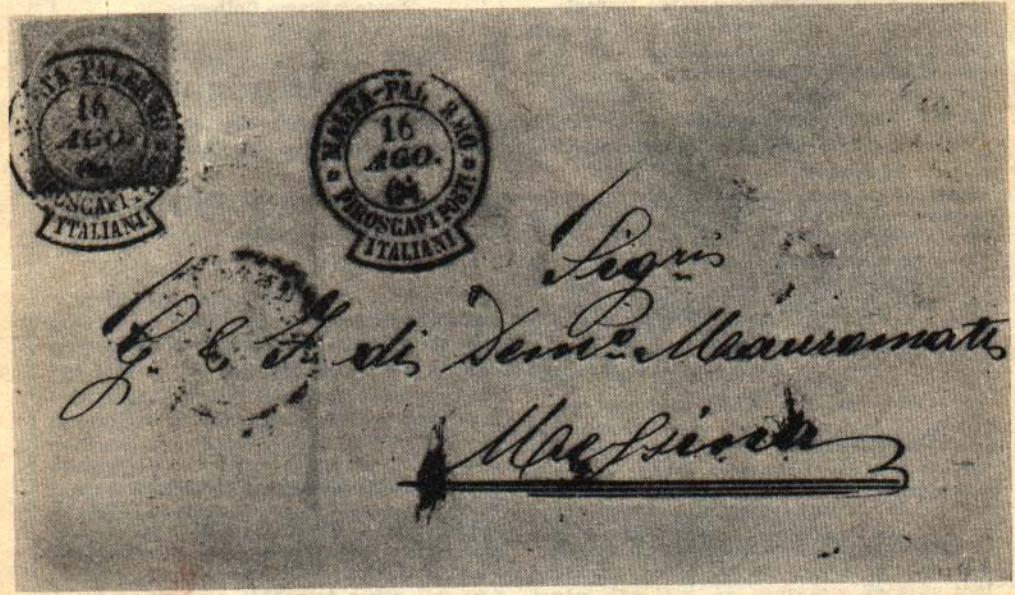 MALTA-PALERMO
16
AGO.
PIROSCAFI
ITALIANI
MALTA-PALERMO
16
AGO.
84
PIROSCAFI POSTI
ITALIANI
Sigris
G. E F. di Demo. Mauromati
Messina